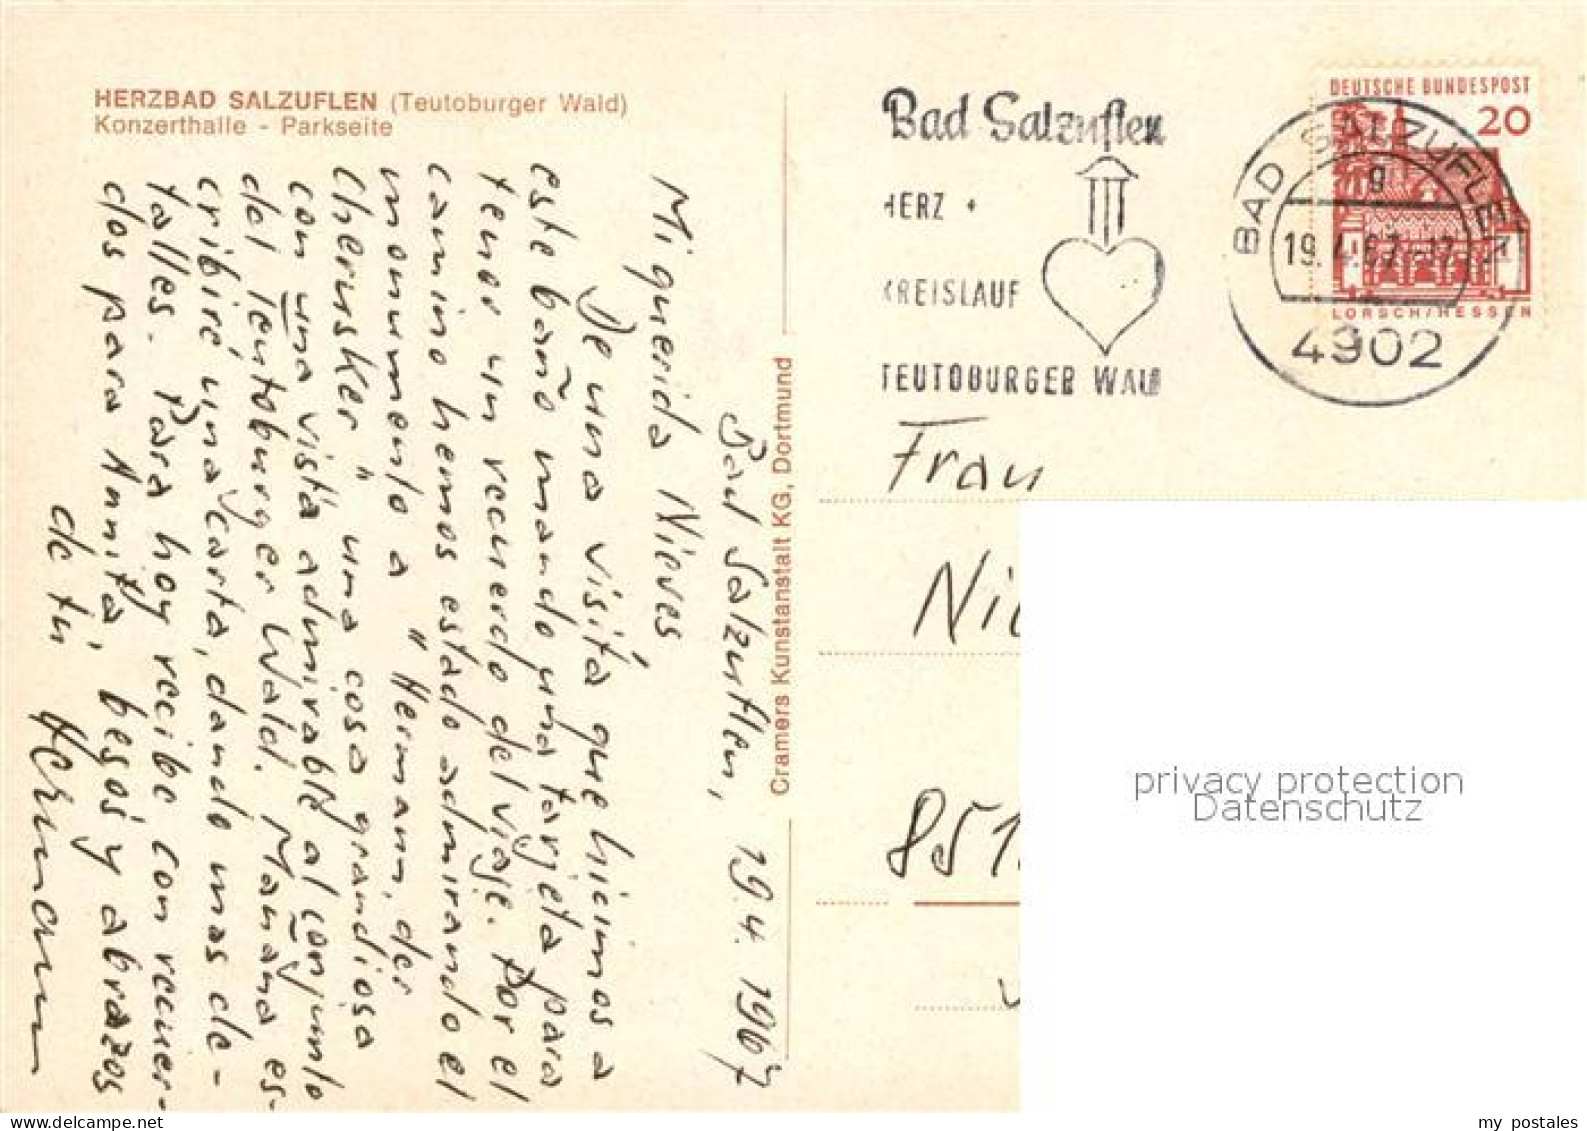 HERZBAD SALZUFLEN (Teutoburger Wald)
Konzerthalle - Parkseite
Bad Salzuflen, 19.4.1967
Mi querida Nieves,
De una visita que hicimos a
este baño mando una tarjeta para
tener un recuerdo del viaje. Por el
camino hemos estado admirando el
monumento a "Hermann, der
Cherusker" una cosa grandiosa
con una vista admirable al conjunto
del Teutoburger Wald. Mañana es-
cribiré una carta, dando mas de-
talles. Para hoy recibe con recuer-
dos para Annita, besos y abrazos
de tu
Cramers Kunstanstalt KG, Dortmund
Bad Salzuflen
HERZ +
KREISLAUF
TEUTOBURGER WALD
DEUTSCHE BUNDESPOST
20
LORSCH/HESSEN
BAD SALZUFLEN
g
19.4.67.-17
4902
Frau
Ni
851
privacy protection
Datenschutz
my postales